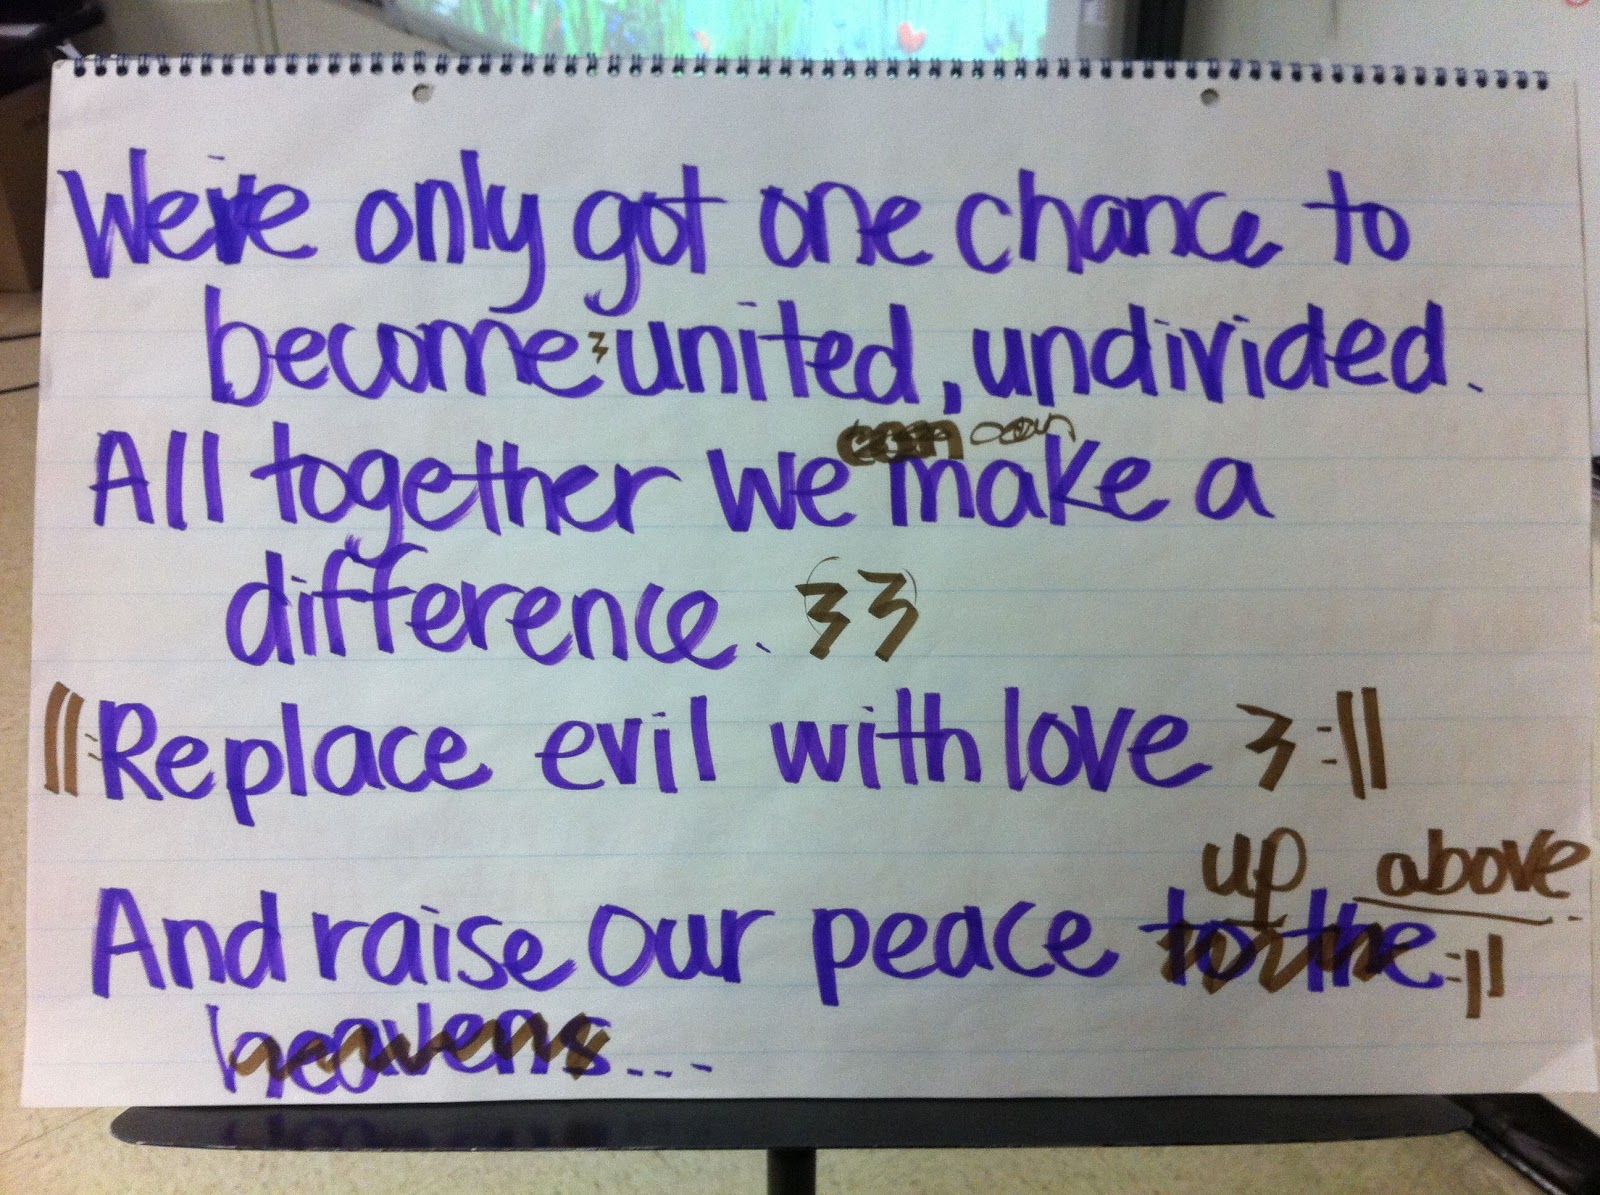 We've only got one chance to
become united, undivided.
can
All together we make a
difference.
Replace evil with love
up above
And raise our peace to the
heavens...